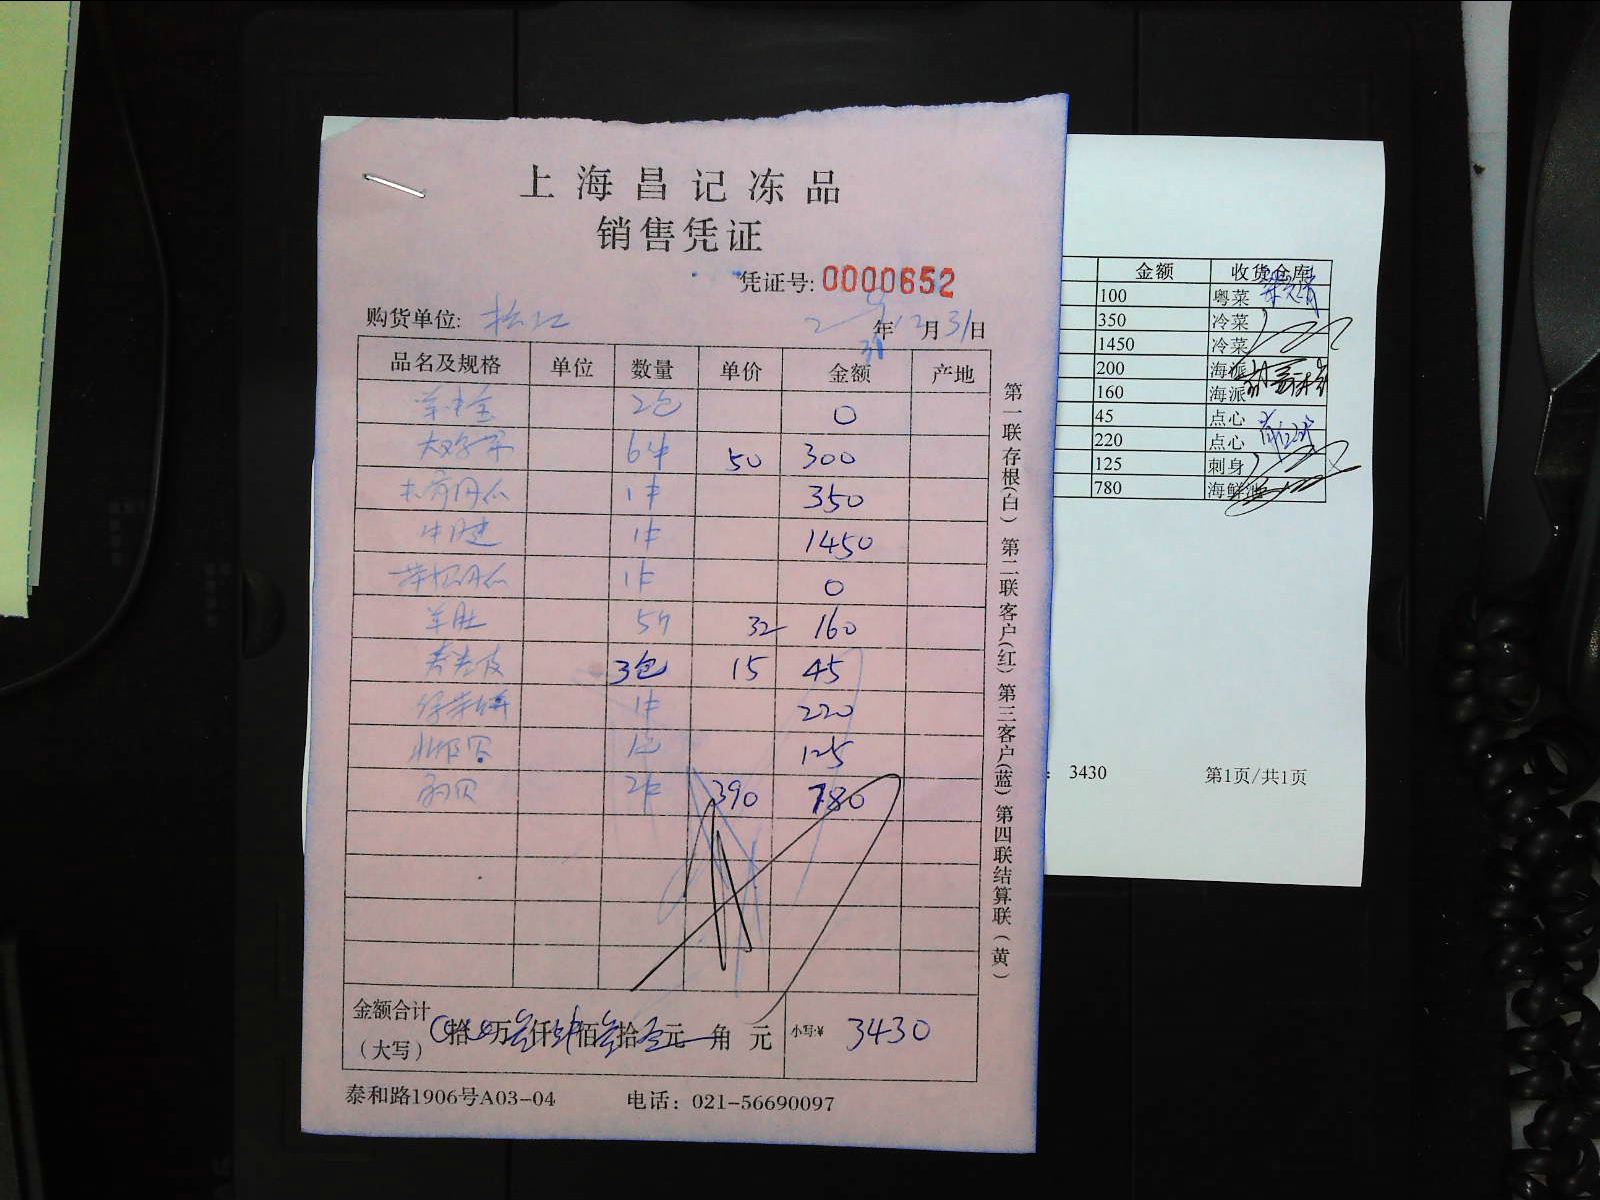 上海昌记冻品
销售凭证
凭证号: 0000652
购货单位: 松江 年12月31日
品名及规格 单位 数量 单价 金额 产地
2包 0
6件 50 300
1件 350
牛腱 1件 1450
1件 0
羊肚 5斤 32 160
春卷皮 3包 15 45
1件 220
1包 125
2件 390 780
金额合计
(大写) 拾 万叁仟肆佰叁拾 元 角 元 小写:¥ 3430
泰和路1906号A03-04 电话: 021-56690097
第一联存根(白) 第二联客户(红) 第三客户(蓝) 第四联结算联(黄)
金额 收货仓库
100 粤菜
350 冷菜
1450 冷菜
200 海派
160 海派
45 点心
220 点心
125 刺身
780 海鲜池
: 3430 第1页/共1页